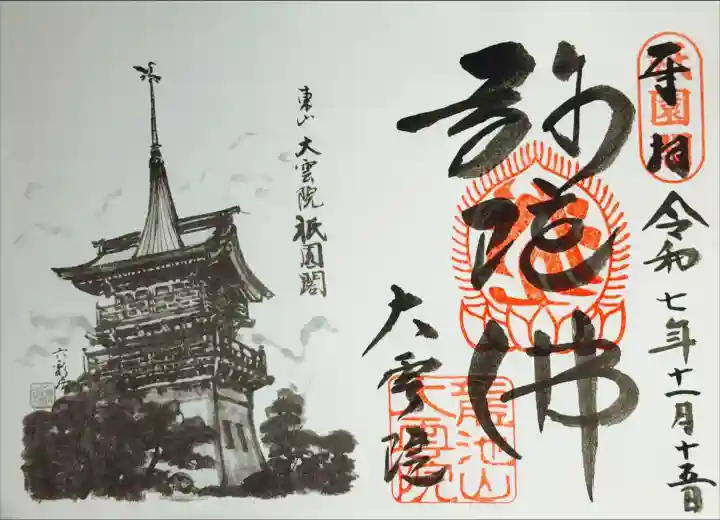 奉拝
祇園閣
令和七年十一月十五日
弥陀仏
大雲院
龍池山
大雲院
東山 大雲院 祇園閣